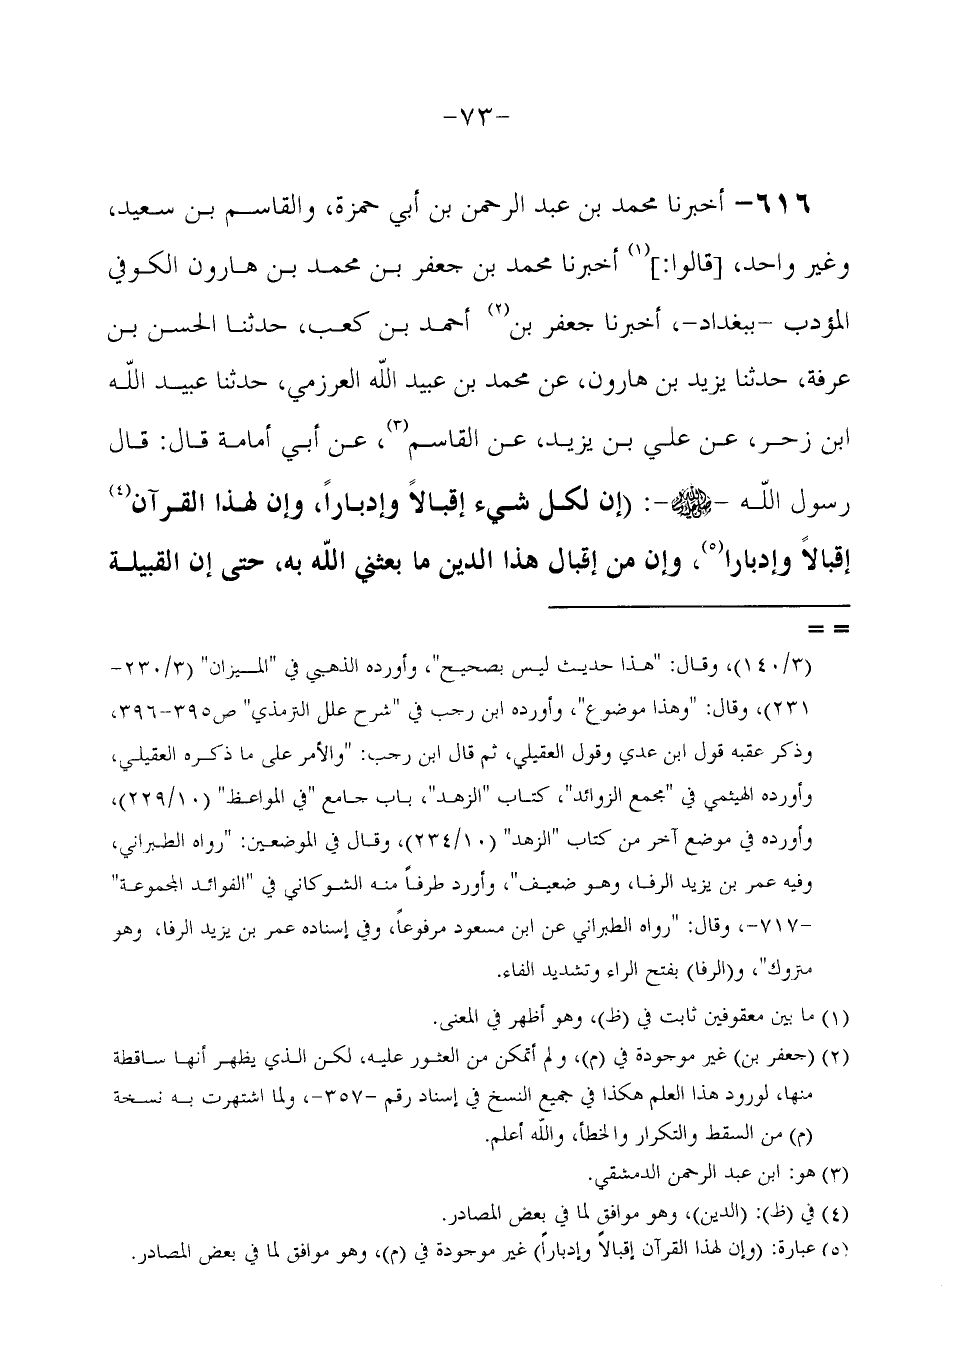 -٧٣-
٦١٦- أخبرنا محمد بن عبد الرحمن بن أبي حمزة، والقاسم بن سعيد،
وغير واحد، [قالوا:](١) أخبرنا محمد بن جعفر بن محمد بن هارون الكوفي
المؤدب -ببغداد-، أخبرنا جعفر بن(٢) أحمد بن كعب، حدثنا الحسن بن
عرفة، حدثنا يزيد بن هارون، عن محمد بن عبيد الله العرزمي، حدثنا عبيد الله
ابن زحر، عن علي بن يزيد، عن القاسم(٣)، عن أبي أمامة قال: قال
رسول الله -ﷺ-: (إن لكل شيء إقبالاً وإدباراً، وإن لهذا القرآن(٤)
إقبالاً وإدبارا(٥)، وإن من إقبال هذا الدين ما بعثني الله به، حتى إن القبيلة
= =
(١٤٠/٣)، وقال: "هذا حديث ليس بصحيح"، وأورده الذهبي في "الميزان" (٢٣٠/٣-
٢٣١)، وقال: "وهذا موضوع"، وأورده ابن رجب في "شرح علل الترمذي" ص٣٩٥-٣٩٦،
وذكر عقبه قول ابن عدي وقول العقيلي، ثم قال ابن رجب: "والأمر على ما ذكره العقيلي،
وأورده الهيثمي في "مجمع الزوائد"، كتاب "الزهد"، باب جامع "في المواعظ" (٢٢٩/١٠)،
وأورده في موضع آخر من كتاب "الزهد" (٢٣٤/١٠)، وقال في الموضعين: "رواه الطبراني،
وفيه عمر بن يزيد الرفا، وهو ضعيف"، وأورد طرفاً منه الشوكاني في "الفوائد المجموعة"
-٧١٧-، وقال: "رواه الطبراني عن ابن مسعود مرفوعاً، وفي إسناده عمر بن يزيد الرفا، وهو
متروك"، و(الرفا) بفتح الراء وتشديد الفاء.
(١) ما بين معقوفين ثابت في (ظ)، وهو أظهر في المعنى.
(٢) (جعفر بن) غير موجودة في (م)، ولم أتمكن من العثور عليه، لكن الذي يظهر أنها ساقطة
منها، لورود هذا العلم هكذا في جميع النسخ في إسناد رقم -٣٥٧-، ولما اشتهرت به نسخة
(م) من السقط والتكرار والخطأ، والله أعلم.
(٣) هو: ابن عبد الرحمن الدمشقي.
(٤) في (ظ): (الدين)، وهو موافق لما في بعض المصادر.
(٥) عبارة: (وإن لهذا القرآن إقبالاً وإدباراً) غير موجودة في (م)، وهو موافق لما في بعض المصادر.